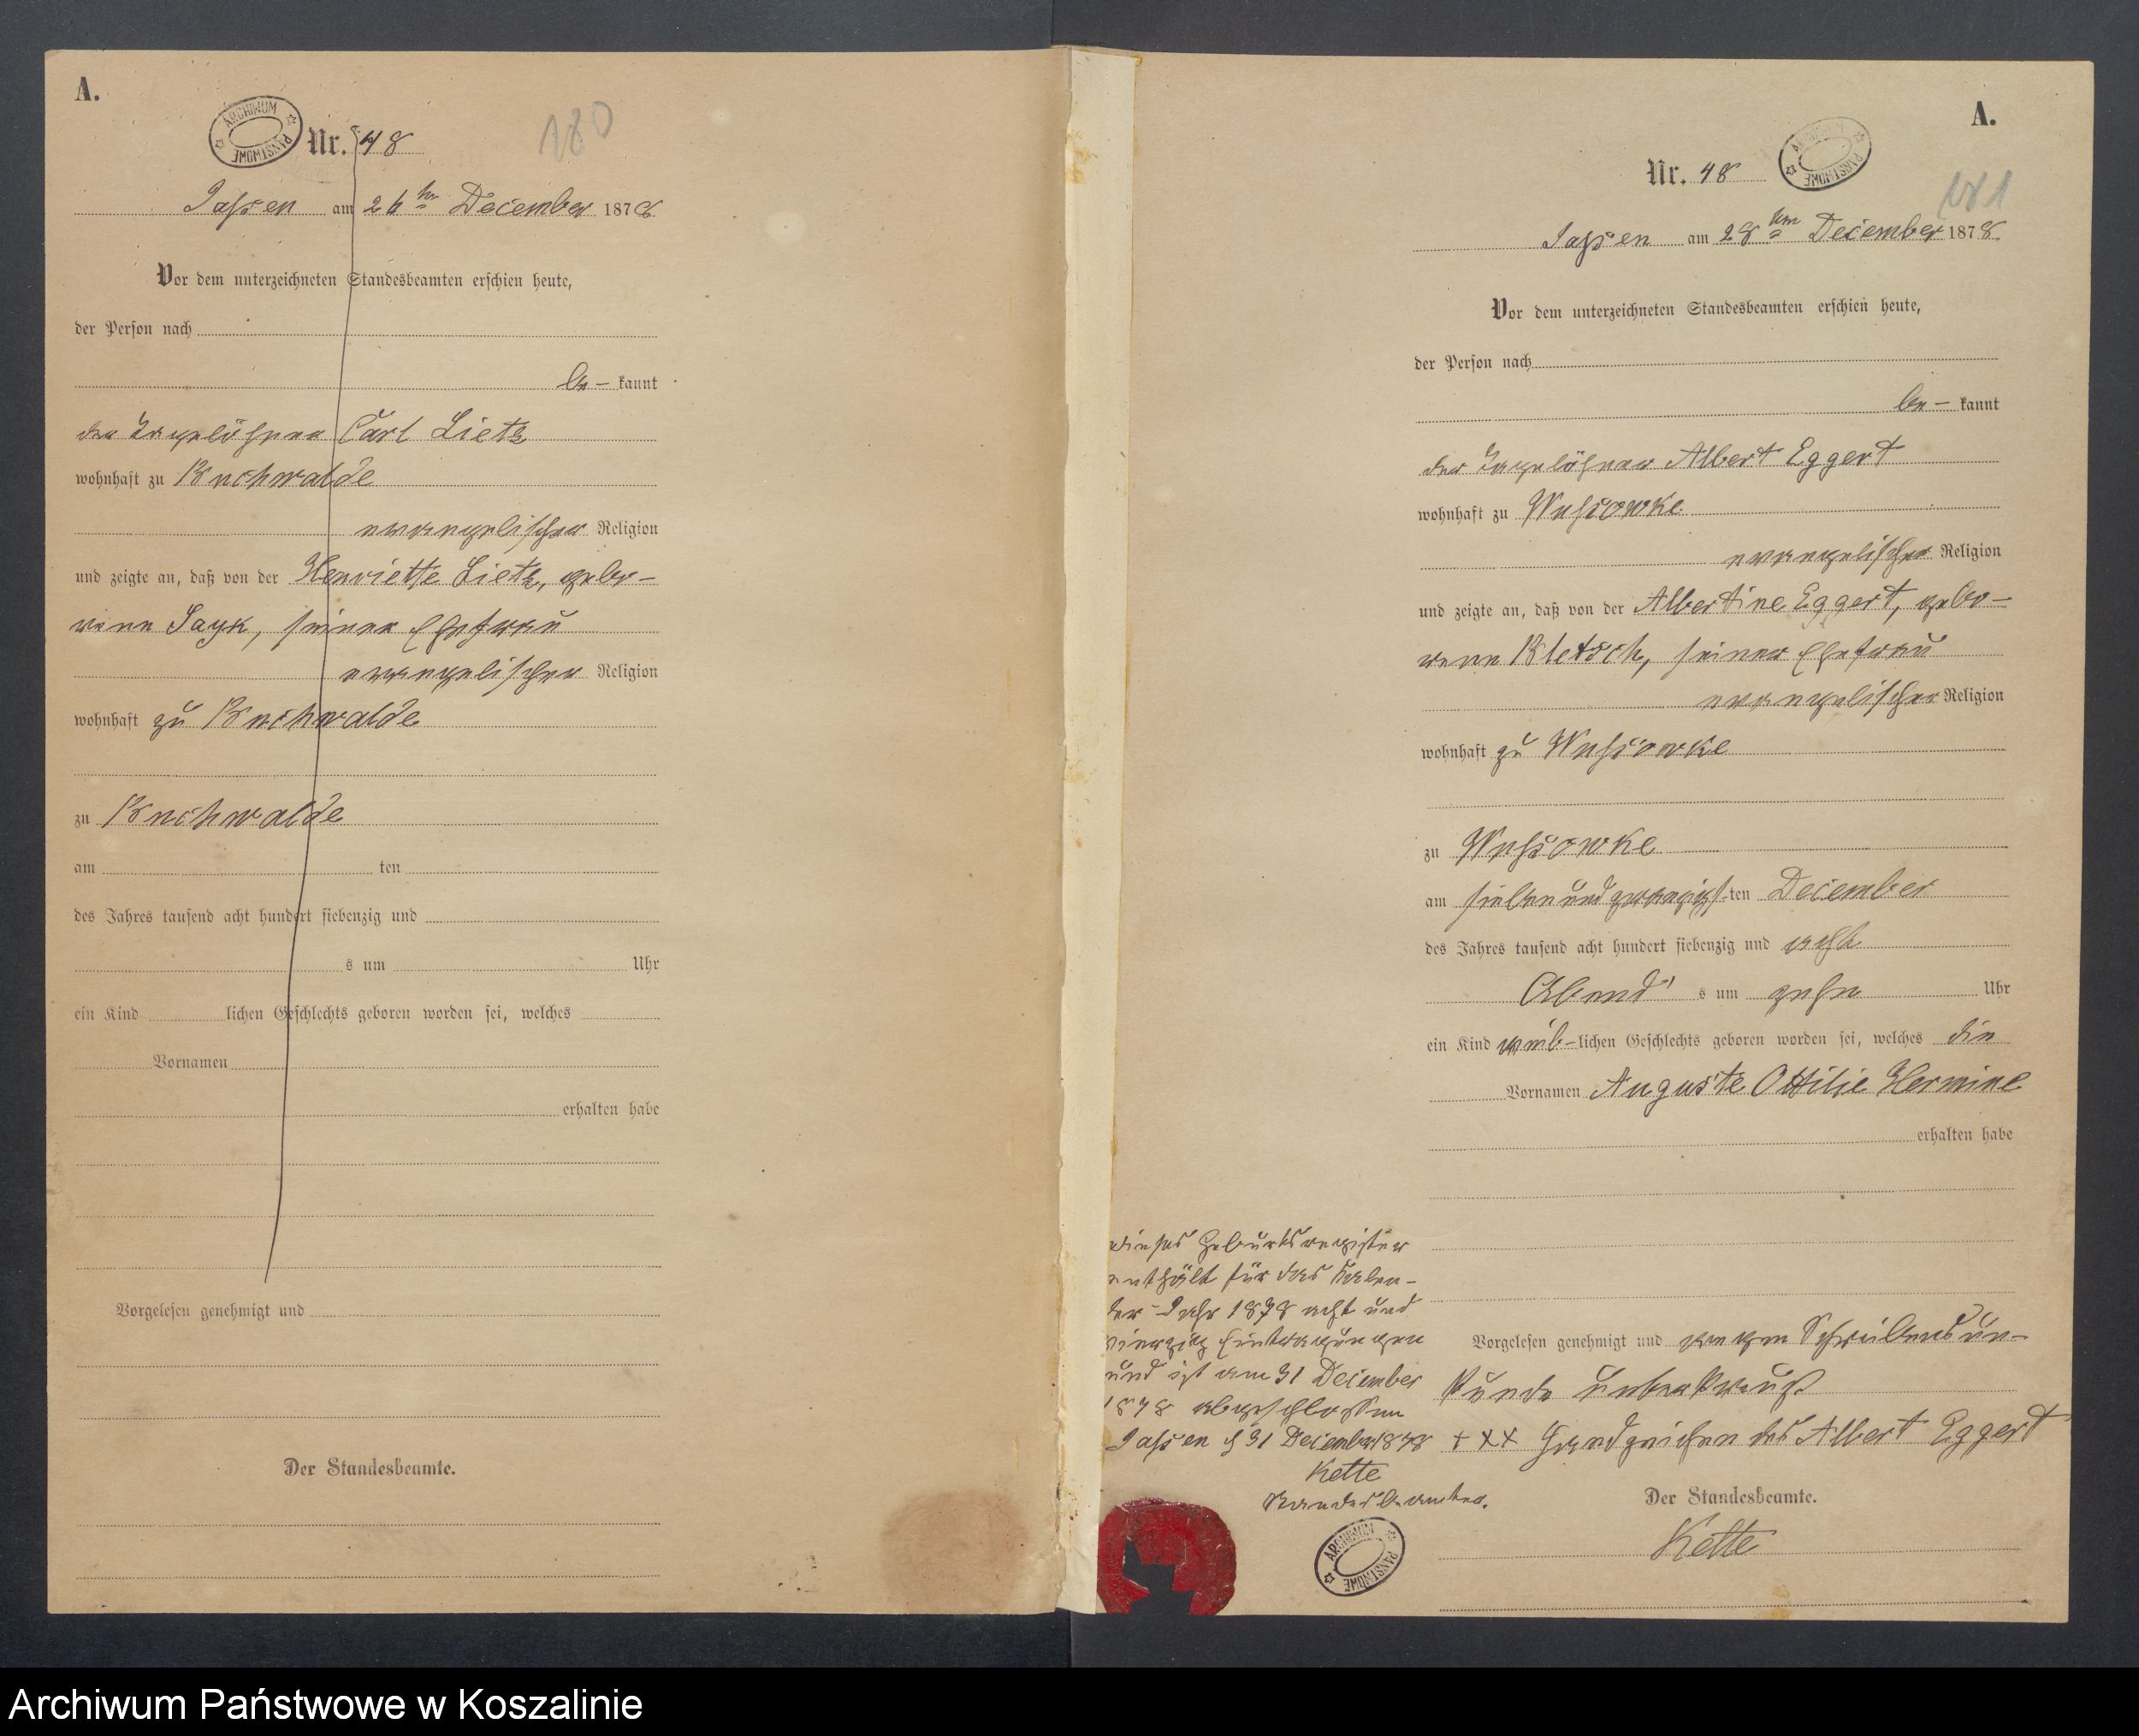 A.
ARCHIWUM PAŃSTWOWE
Nr. 48
180
Jassen am 26ten December 1878
Vor dem unterzeichneten Standesbeamten erschien heute,
der Person nach
be- kannt
der Tagelöhner Carl Lietz
wohnhaft zu Buchwalde
evangelischer Religion
und zeigte an, daß von der Henriette Lietz, gebo-
rene Sayk, seiner Ehefrau
evangelischer Religion
wohnhaft zu Buchwalde
zu Buchwalde
am ten
des Jahres tausend acht hundert siebenzig und
s um Uhr
ein Kind lichen Geschlechts geboren worden sei, welches
Vornamen
erhalten habe
Vorgelesen genehmigt und
Der Standesbeamte.
A.
Nr. 48
ARCHIWUM PAŃSTWOWE
181
Jassen am 28ten December 1878.
Vor dem unterzeichneten Standesbeamten erschien heute,
der Person nach
be- kannt
der Tagelöhner Albert Eggert
wohnhaft zu Wussowke
evangelischer Religion
und zeigte an, daß von der Albertine Eggert, gebo-
rene Bletsch, seiner Ehefrau
evangelischer Religion
wohnhaft zu Wussowke
zu Wussowke
am siebenundzwanzigsten December
des Jahres tausend acht hundert siebenzig und acht
Abends um zehn Uhr
ein Kind weib-lichen Geschlechts geboren worden sei, welches die
Vornamen Auguste Ottilie Hermine
erhalten habe
Vorgelesen genehmigt und wegen Schreibensun-
kunde unterkreuzt
+++ Handzeichen des Albert Eggert
Der Standesbeamte.
Kette
Dieses Geburtsregister
enthält für das Kalen-
der-Jahr 1878 acht und
vierzig Eintragungen
und ist am 31 December
1878 abgeschlossen
Jassen d 31 December 1878
Kette
Standesbeamter.
ARCHIWUM PAŃSTWOWE
Archiwum Państwowe w Koszalinie